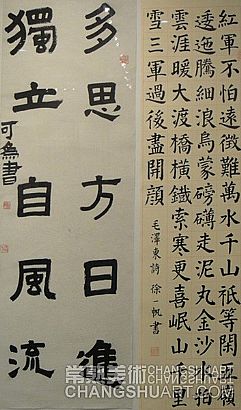 紅軍不怕遠征難萬水千山祇等閑五嶺
逶迤騰細浪烏蒙磅礴走泥丸金沙水拍
雲涯暖大渡橋橫鐵索寒更喜岷山千里
雪三軍過後盡開顏
毛澤東詩 徐一帆書
多思方日進
獨立自風流
可 書
常熟美術 CHANGSHUART
CHANGSHUART.COM